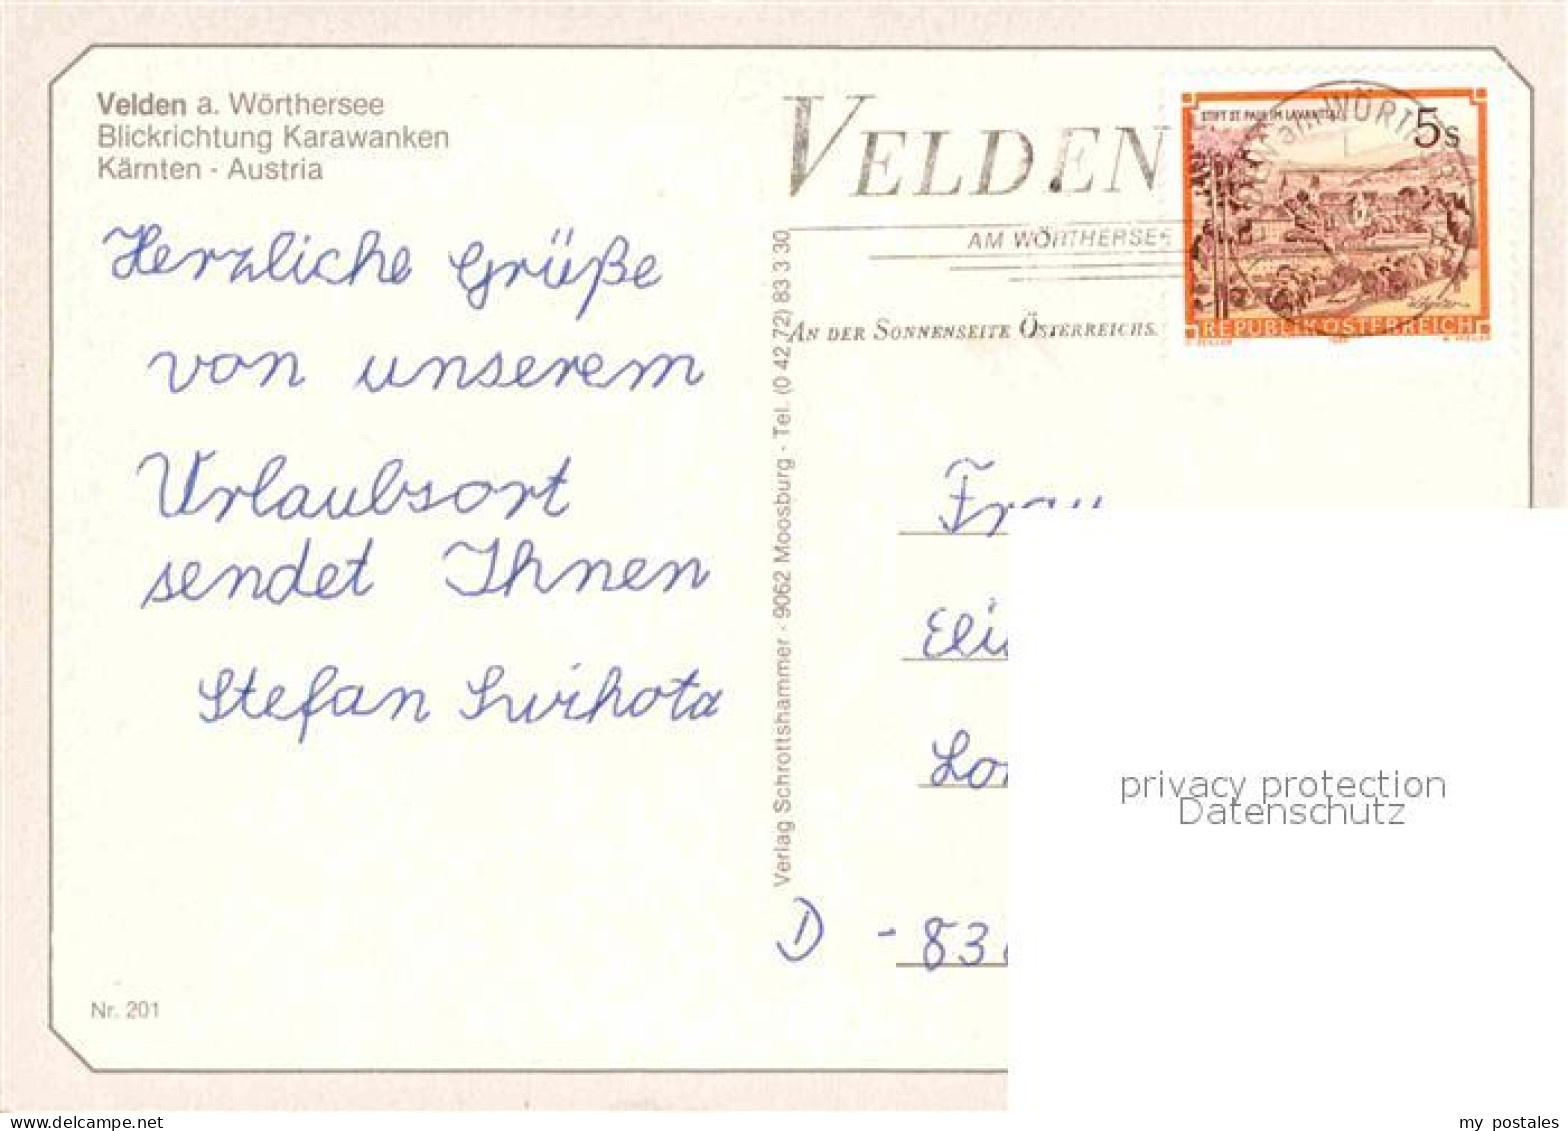 Velden a. Wörthersee
Blickrichtung Karawanken
Kärnten - Austria
Herzliche Grüße
von unserem
Urlaubsort
sendet Ihnen
Stefan Swihota
Nr. 201
Verlag Schrottshammer - 9062 Moosburg - Tel. (0 42 72) 83 3 30
VELDEN
AM WÖRTHERSEE
AN DER SONNENSEITE ÖSTERREICHS.
STIFT ST. PAUL IM LAVANTTAL
5s
REPUBLIK ÖSTERREICH
Frau
D - 83
privacy protection
Datenschutz
delcampe.net
my_postales